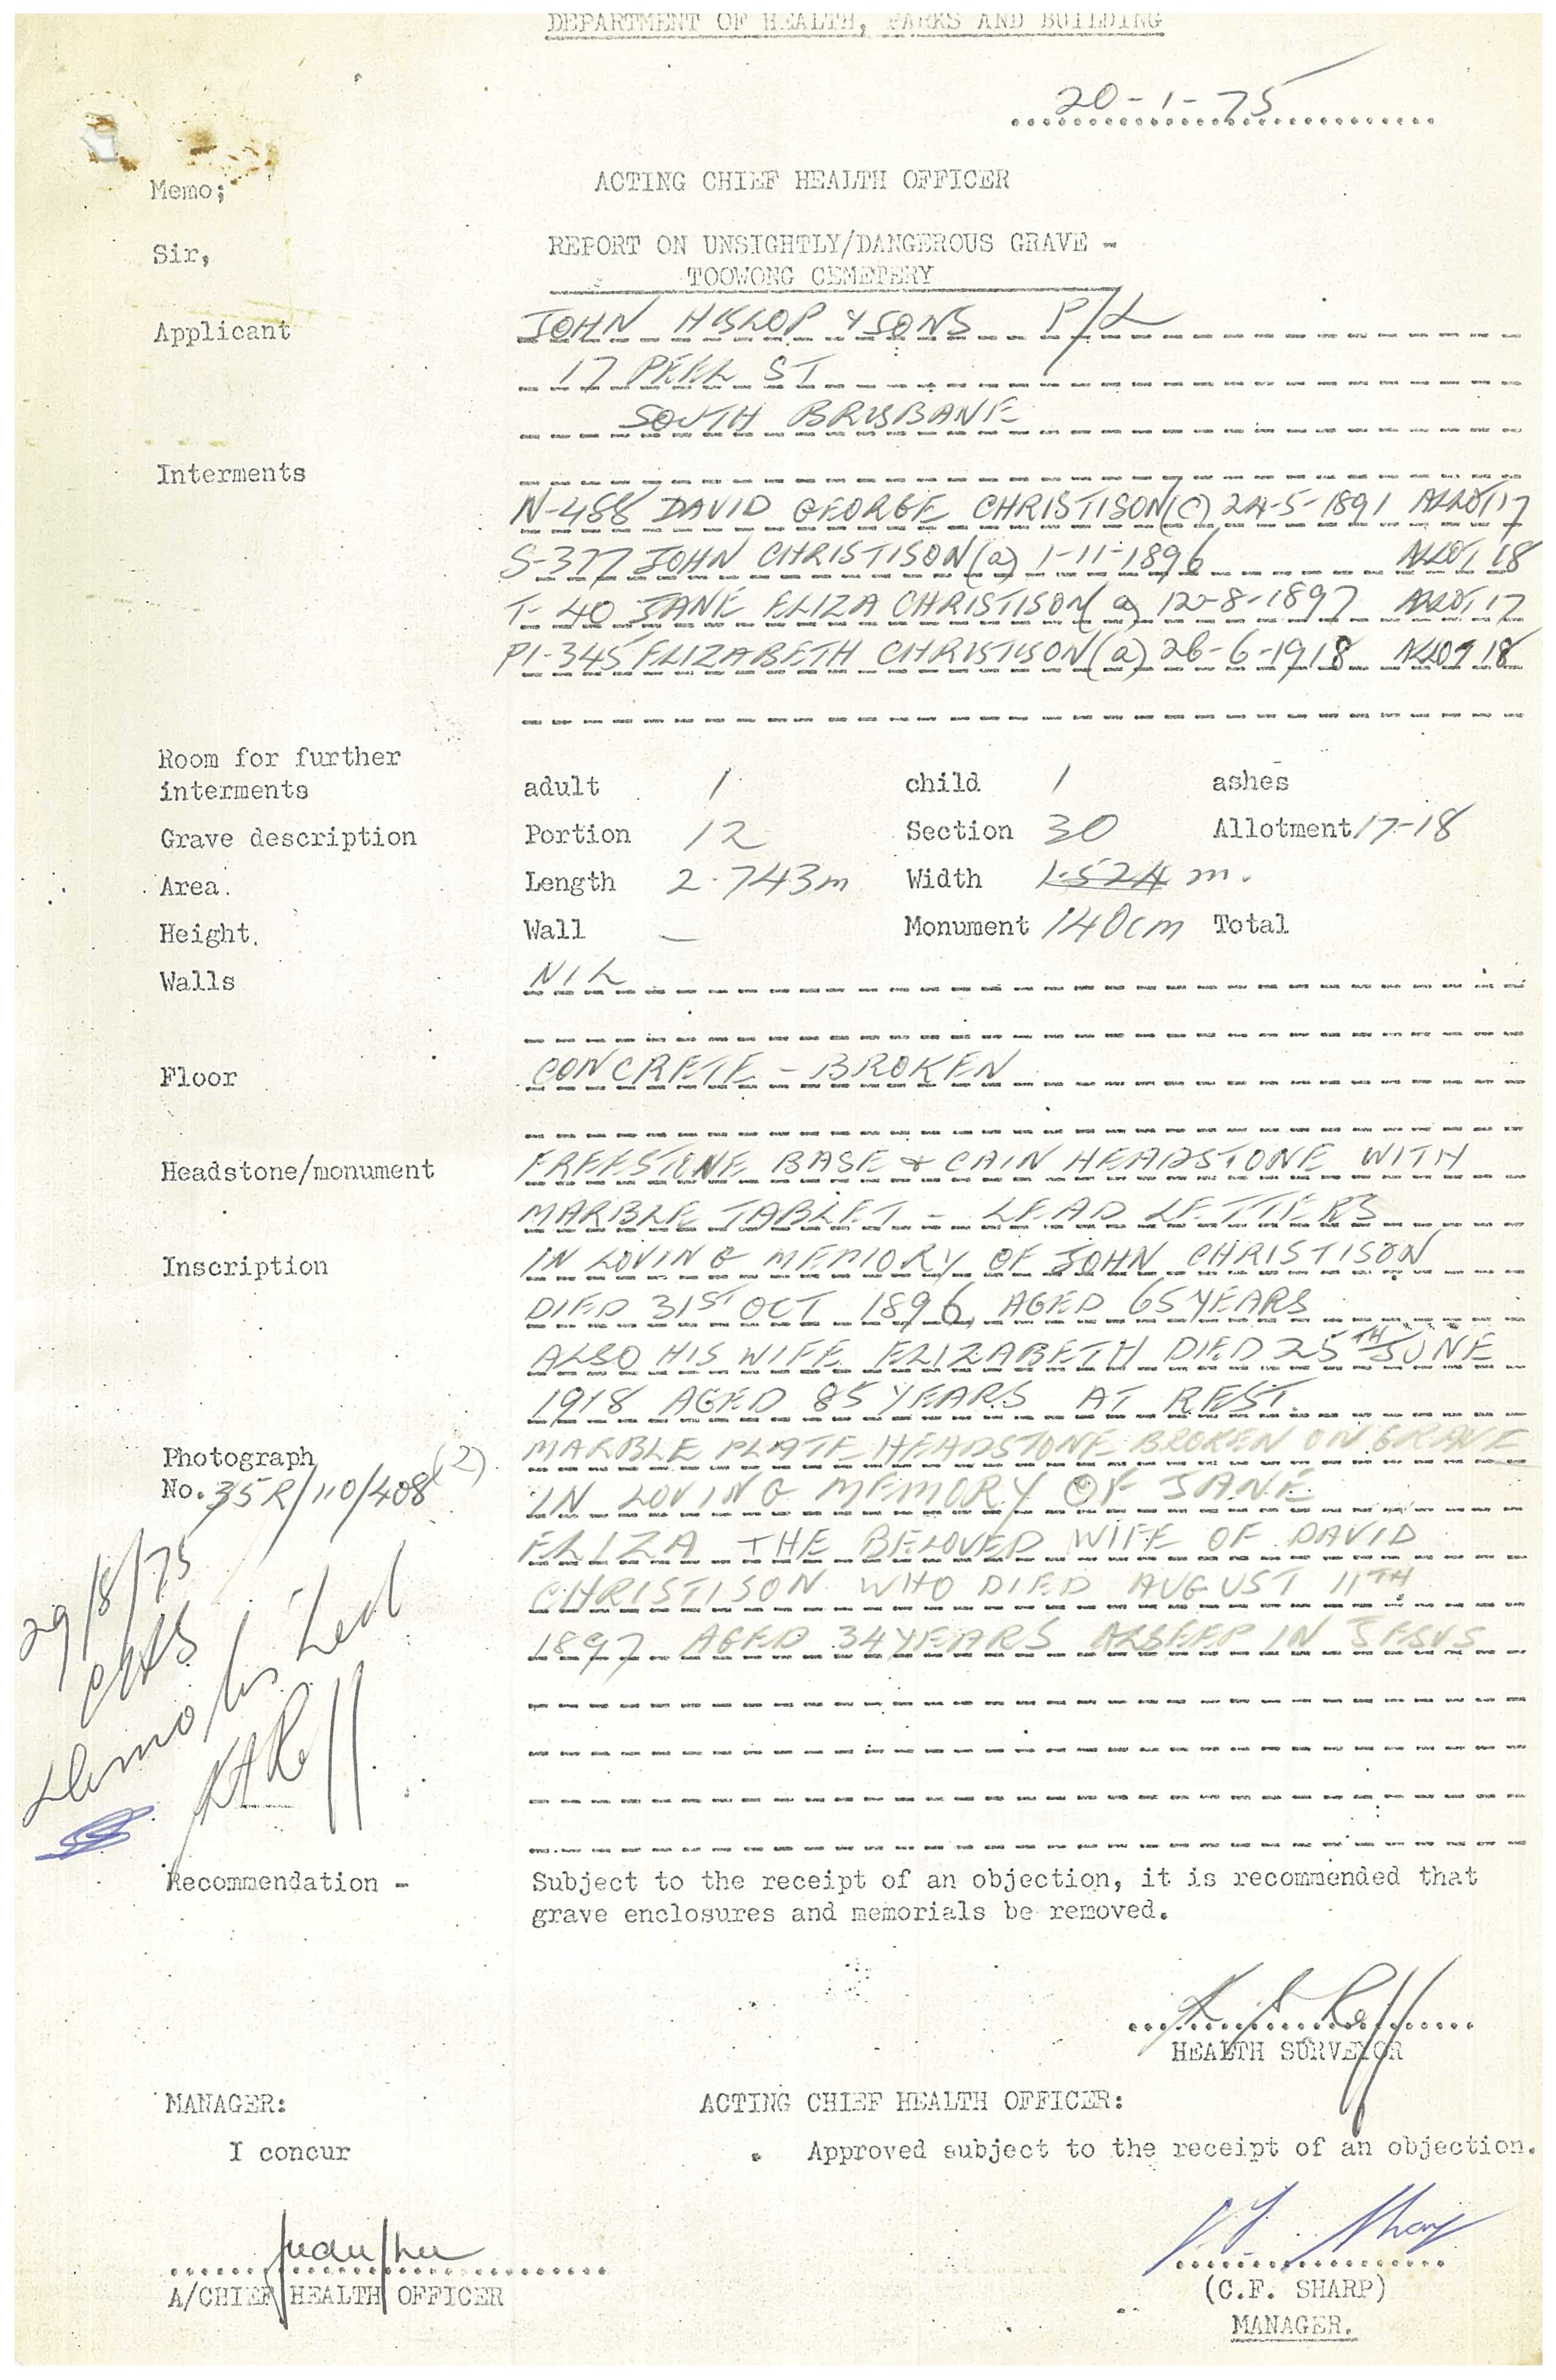 DEPARTMENT OF HEALTH, PARKS AND BUILDING
20-1-75
Memo; ACTING CHIEF HEALTH OFFICER
Sir, REPORT ON UNSIGHTLY/DANGEROUS GRAVE -
TOOWONG CEMETERY
Applicant JOHN HISLOP & SONS P/L
17 PEEL ST
SOUTH BRISBANE
Interments
N-488 DAVID GEORGE CHRISTISON (c) 24-5-1891 ALLOT 17
S-377 JOHN CHRISTISON (a) 1-11-1896 ALLOT 18
T-40 JANE ELIZA CHRISTISON (a) 12-8-1897 ALLOT 17
P1-345 ELIZABETH CHRISTISON (a) 26-6-1918 ALLOT 18
Room for further
interments adult 1 child 1 ashes
Grave description Portion 12 Section 30 Allotment 17-18
Area. Length 2.743m Width 1.524 m.
Height. Wall — Monument 140cm Total
Walls NIL
Floor CONCRETE - BROKEN
Headstone/monument FREESTONE BASE & CAIN HEADSTONE WITH
MARBLE TABLET - LEAD LETTERS
Inscription IN LOVING MEMORY OF JOHN CHRISTISON
DIED 31ST OCT 1896 AGED 65 YEARS
ALSO HIS WIFE ELIZABETH DIED 25TH JUNE
1918 AGED 85 YEARS AT REST.
Photograph MARBLE PLATE HEADSTONE BROKEN ON GRAVE
No. 35R/110/408 (2) IN LOVING MEMORY OF JANE
ELIZA THE BELOVED WIFE OF DAVID
CHRISTISON WHO DIED AUGUST 11TH
1897 AGED 34 YEARS ALSEEP IN JESUS
29/8/75
Recommendation - Subject to the receipt of an objection, it is recommended that
grave enclosures and memorials be removed.
HEALTH SURVEYOR
MANAGER: ACTING CHIEF HEALTH OFFICER:
I concur Approved subject to the receipt of an objection.
A/CHIEF HEALTH OFFICER (C.F. SHARP)
MANAGER.